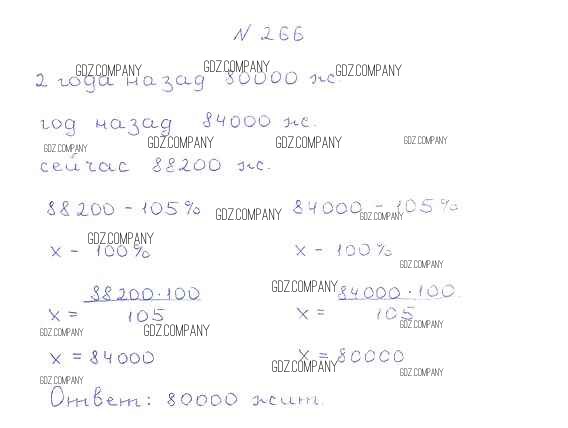 N 266
2 года назад 80000 жс.
год назад 84000 жс.
сейчас 88200 жс.
88200 - 105% 84000 - 105%
x - 100% x - 100%
x = 88200·100 / 105 x = 84000·100 / 105
x = 84000 x = 80000
Ответ: 80000 жит.
GDZ.COMPANY GDZ.COMPANY GDZ.COMPANY
GDZ.COMPANY GDZ.COMPANY GDZ.COMPANY GDZ.COMPANY
GDZ.COMPANY GDZ.COMPANY
GDZ.COMPANY GDZ.COMPANY
GDZ.COMPANY
GDZ.COMPANY GDZ.COMPANY GDZ.COMPANY
GDZ.COMPANY GDZ.COMPANY GDZ.COMPANY